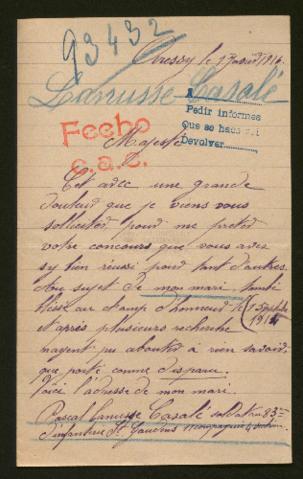 93432
Aressy le 1 août 1916
Lanusse-Cazalé
A
Pedir informes
Que se haga
Devolver
Fecho
c.a.c.
Majesté
Cet avec une grande
douleur que je viens vous
solliciter pour me preter
votre concours que vous avez
sy bien réussi pour tant d'autres.
Au sujet de mon mari tombé
blessé au champ d'honneur le 1 Septembre
1914
et après plusieurs recherche
nayent pu aboutir a rien savoir,
que porté comme disparu.
Voici l'adresse de mon mari.
Pascal Lanusse Cazalé soldat au 83me
d'infanterie St Gaudens compagnie section